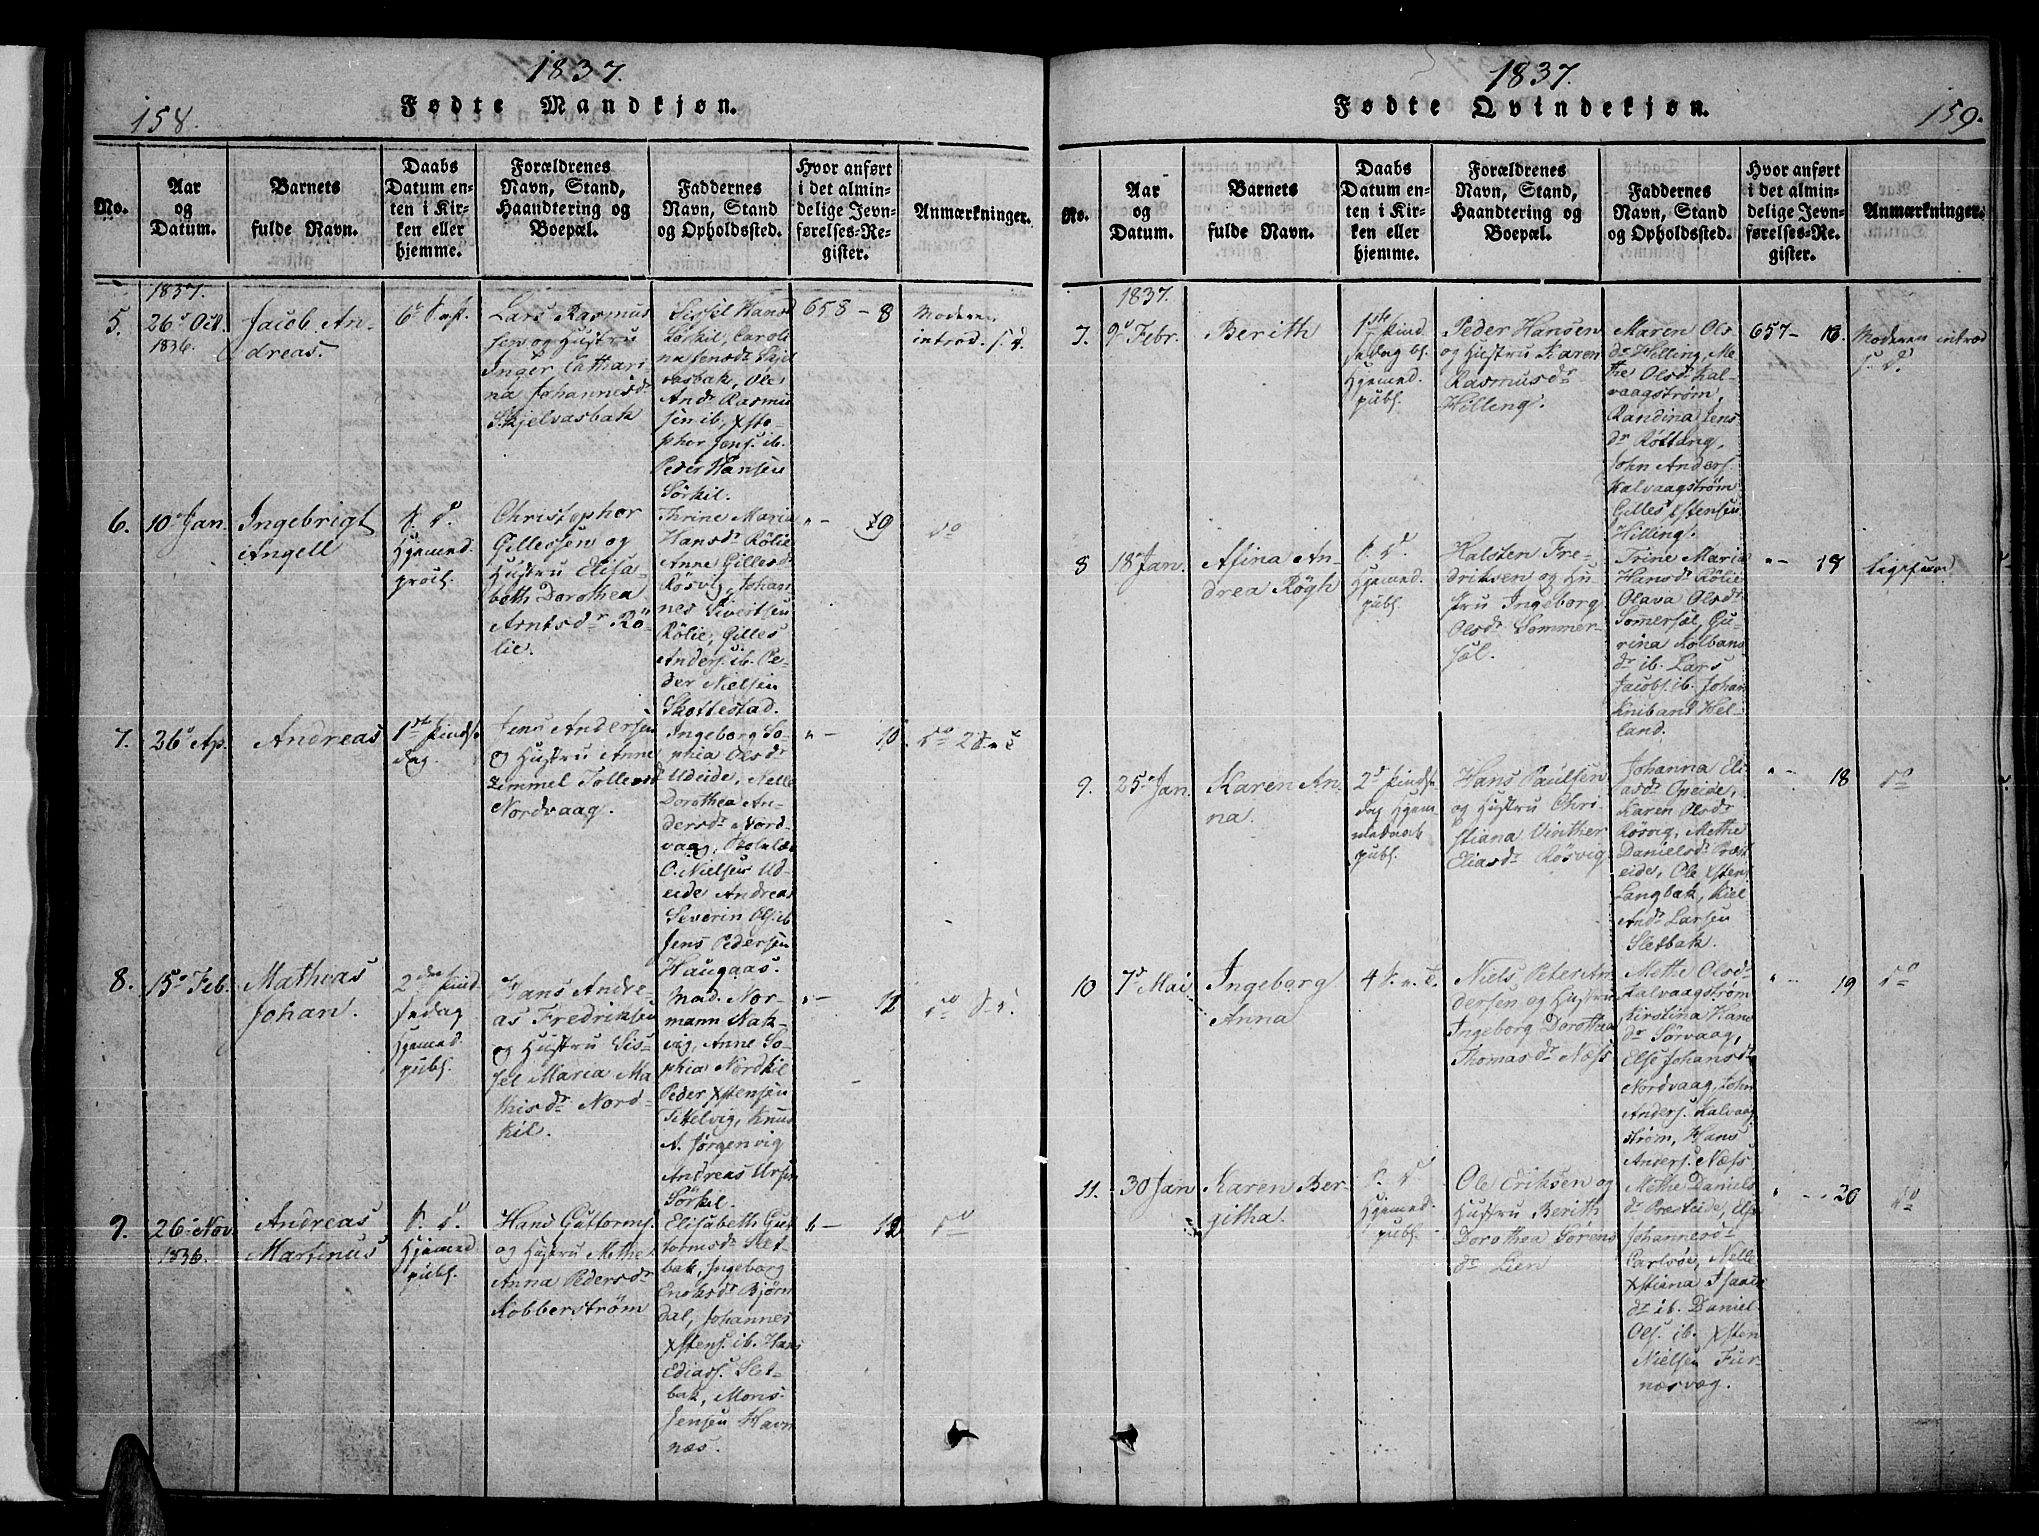 1837.
158.
Fødte Mandkjøn.
No.
Aar
og
Datum.
Barnets
fulde Navn.
Daabs
Datum en-
ten i Kir-
ken eller
hjemme.
Forældrenes
Navn, Stand,
Haandtering og
Boepæl.
Faddernes
Navn, Stand
og Opholdssted.
Hvor anført
i det almin-
delige Jevn-
førelses-Re-
gister.
Anmærkninger.
5.
1837.
26de Oct.
1836.
Jacob An-
dreas.
6te
Lars Rasmus
sen og Hustru
Inger Cathari-
na Johannesdr
Skjelvasbak
Sissil Hansd
Sørkil, Caroli
na Jensdr Skil
vasbak, Ole
Andr Rasmus
sen ib, Xsto-
pher Jens. ib.
Peder Hansen
Sørkil.
658 - 8
Moderen
introd. s. d.
6.
10de Jan.
Ingebrigt
Angell
S. D.
Hjemmed.
Christopher
Gillessen og
Hustru Elisa-
beth Dorothea
Arntsdr Rö-
lie.
Thrine Maria
Hansdr Rölie
Anne Gillesd
Rösvig, Johan-
nes Sivertsen
Rölie, Gilles
Anders. ib. Pe-
der Nielsen
Skottestad.
" - 10
do
7.
26de Ap.
Andreas
1ste Pindse
dag
Jens Andersen
og Hustru Anne
Zimmel Tollensd
Nordvaag.
Ingeborg So-
phia Olsdr
Udeide, Nelle
Dorothea An-
dersdr Nord-
vaag,
O. Nielsen Ud-
eide Andreas
Severin Ols. ib
Jens Pedersen
Haugaas.
" - 10
do
8.
15de Feb.
Mathias
Johan.
2den Pind
sedag
Hjemmed.
publ.
Hans Andre-
as Fredriksen
og Hustru Sis-
sel Maria Ma
thisdr Nord-
kil.
Mad. Nor-
mann Nak-
vig, Anne So-
phia Nordkil
Peder Xstensen
Tittelvig, Knud
A. Jørgenvig
Andreas Ursin
Sörkil.
" - 12
do
9.
26de Nov.
1836.
Andreas
Martinus
S. D.
Hjemmed.
publ.
Hans Guttorms.
og Hustru Methe
Anna Pedersdr
Kobberstrøm
Elisabeth Gut
tormsdr Slet-
bak, Ingeborg
Enoksdr Bjørn
dal, Johannes
Xstens. ib. Hans
Ediass. Slet-
bak, Mons
Jensen Havn
næs.
" - 12
do
1837.
159.
Fødte Qvindekjøn.
No.
Aar
og
Datum.
Barnets
fulde Navn.
Daabs
Datum en-
ten i Kir-
ken eller
hjemme.
Forældrenes
Navn, Stand,
Haandtering og
Boepæl.
Faddernes
Navn, Stand
og Opholdssted.
Hvor anført
i det almin-
delige Jevn-
førelses-Re-
gister.
Anmærkninger.
1837.
7.
9de Febr.
Berith
1ste Pind
sedag
Hjemmed.
publ.
Peder Hansen
og Hustru Karen
Rasmusdr
Hilling.
Maren Ols
dr Hilling, Me-
the Olsdr Kal-
vaagstrøm,
Randina Jens
dr Röttang,
John Anders.
Kalvaagstrøm
Gilles Xstensen
Hilling.
657 - 16
Moderen introd
s. d.
8
18de Jan.
Afina An-
drea Rögh
S. D.
Hjemmed.
publ.
Halsten Fre-
driksen og Hu-
stru Ingeborg
Olsdr Sommer-
söl.
Trine Maria
Hansdr Rölie
Olava Olsdr
Somersöl, Gu-
rina Kolbans
dr ib. Lars
Jacobs. ib. Johan
Knibant Hel-
land.
" - 17
ligesaa
9.
25de Jan.
Karen An-
na.
2d Pindse
dag Hjem
medøbt
publ.
Hans Paulsen
og Hustru Chri-
stiana Vinther
Eliasdr Rösvig
Johanna Eli
asdr Opeide,
Karen Olsdr
Rösvig, Methe
Danielsdr Præst
eide, Ole Xstens
Langbak, Kiel
Andr Larsen
Sletbak.
" - 18
do
10
7de Mai
Ingeborg
Anna
4 S. e. T.
Niels Peter An
dersen og Hustru
Ingeborg Dorothea
Thomasdr Næss
Methe Olsdr
Kalvaagstrøm
Kirstina Hans
dr Sørvaag,
Else Johansdr
Nordvaag, John
Anders. Kalvaag
strøm, Hans
Anders. Næss
" - 19
do
11.
30 Jan
Karen Ber-
githa.
S. D.
Hjemmed.
publ.
Ole Eriksen og
Hustru Berith
Dorothea Sørens
dr Lien
Methe Daniels
dr Præsteide, Else
Johannesdr
Carlsöe, Nelle
Xstiana Isaacs
dr ib. Daniel
Ols. ib. Xsten
Nielsen Fur-
næsvæg.
" - 20
do